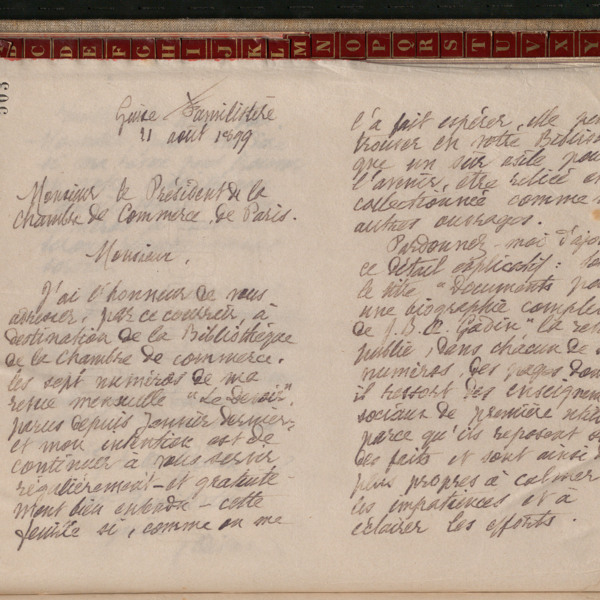 C D E F G H I J K L M N O P Q R S T U V X Y
503
Guise Familistère
21 août 1899
Monsieur le Président de la
Chambre de Commerce de Paris.
Monsieur,
J'ai l'honneur de vous
adresser, par ce courrier, à
destination de la Bibliothèque
de la Chambre de commerce,
les sept numéros de ma
revue mensuelle "Le Devoir",
parus depuis Janvier dernier,
et mon intention est de
continuer à vous servir
régulièrement - et gratuite-
ment bien entendu - cette
feuille si, comme on me
l'a fait espérer, elle peu
trouver en votre Biblio
que un sûr asile pou
l'avenir, être reliée e
collectionnée comme
autres ouvrages.
Pardonnez-moi d'ajo
ce détail explicatif :
le titre "Documents po
une biographie complè
de J. B. A. Godin" la rev
publie, dans chacun de
numéros, des pages don
il ressort des enseignem
sociaux de première utili
parce qu'ils reposent
des faits et sont ainsi
plus propres à calmer
les impatiences et à
éclairer les efforts.